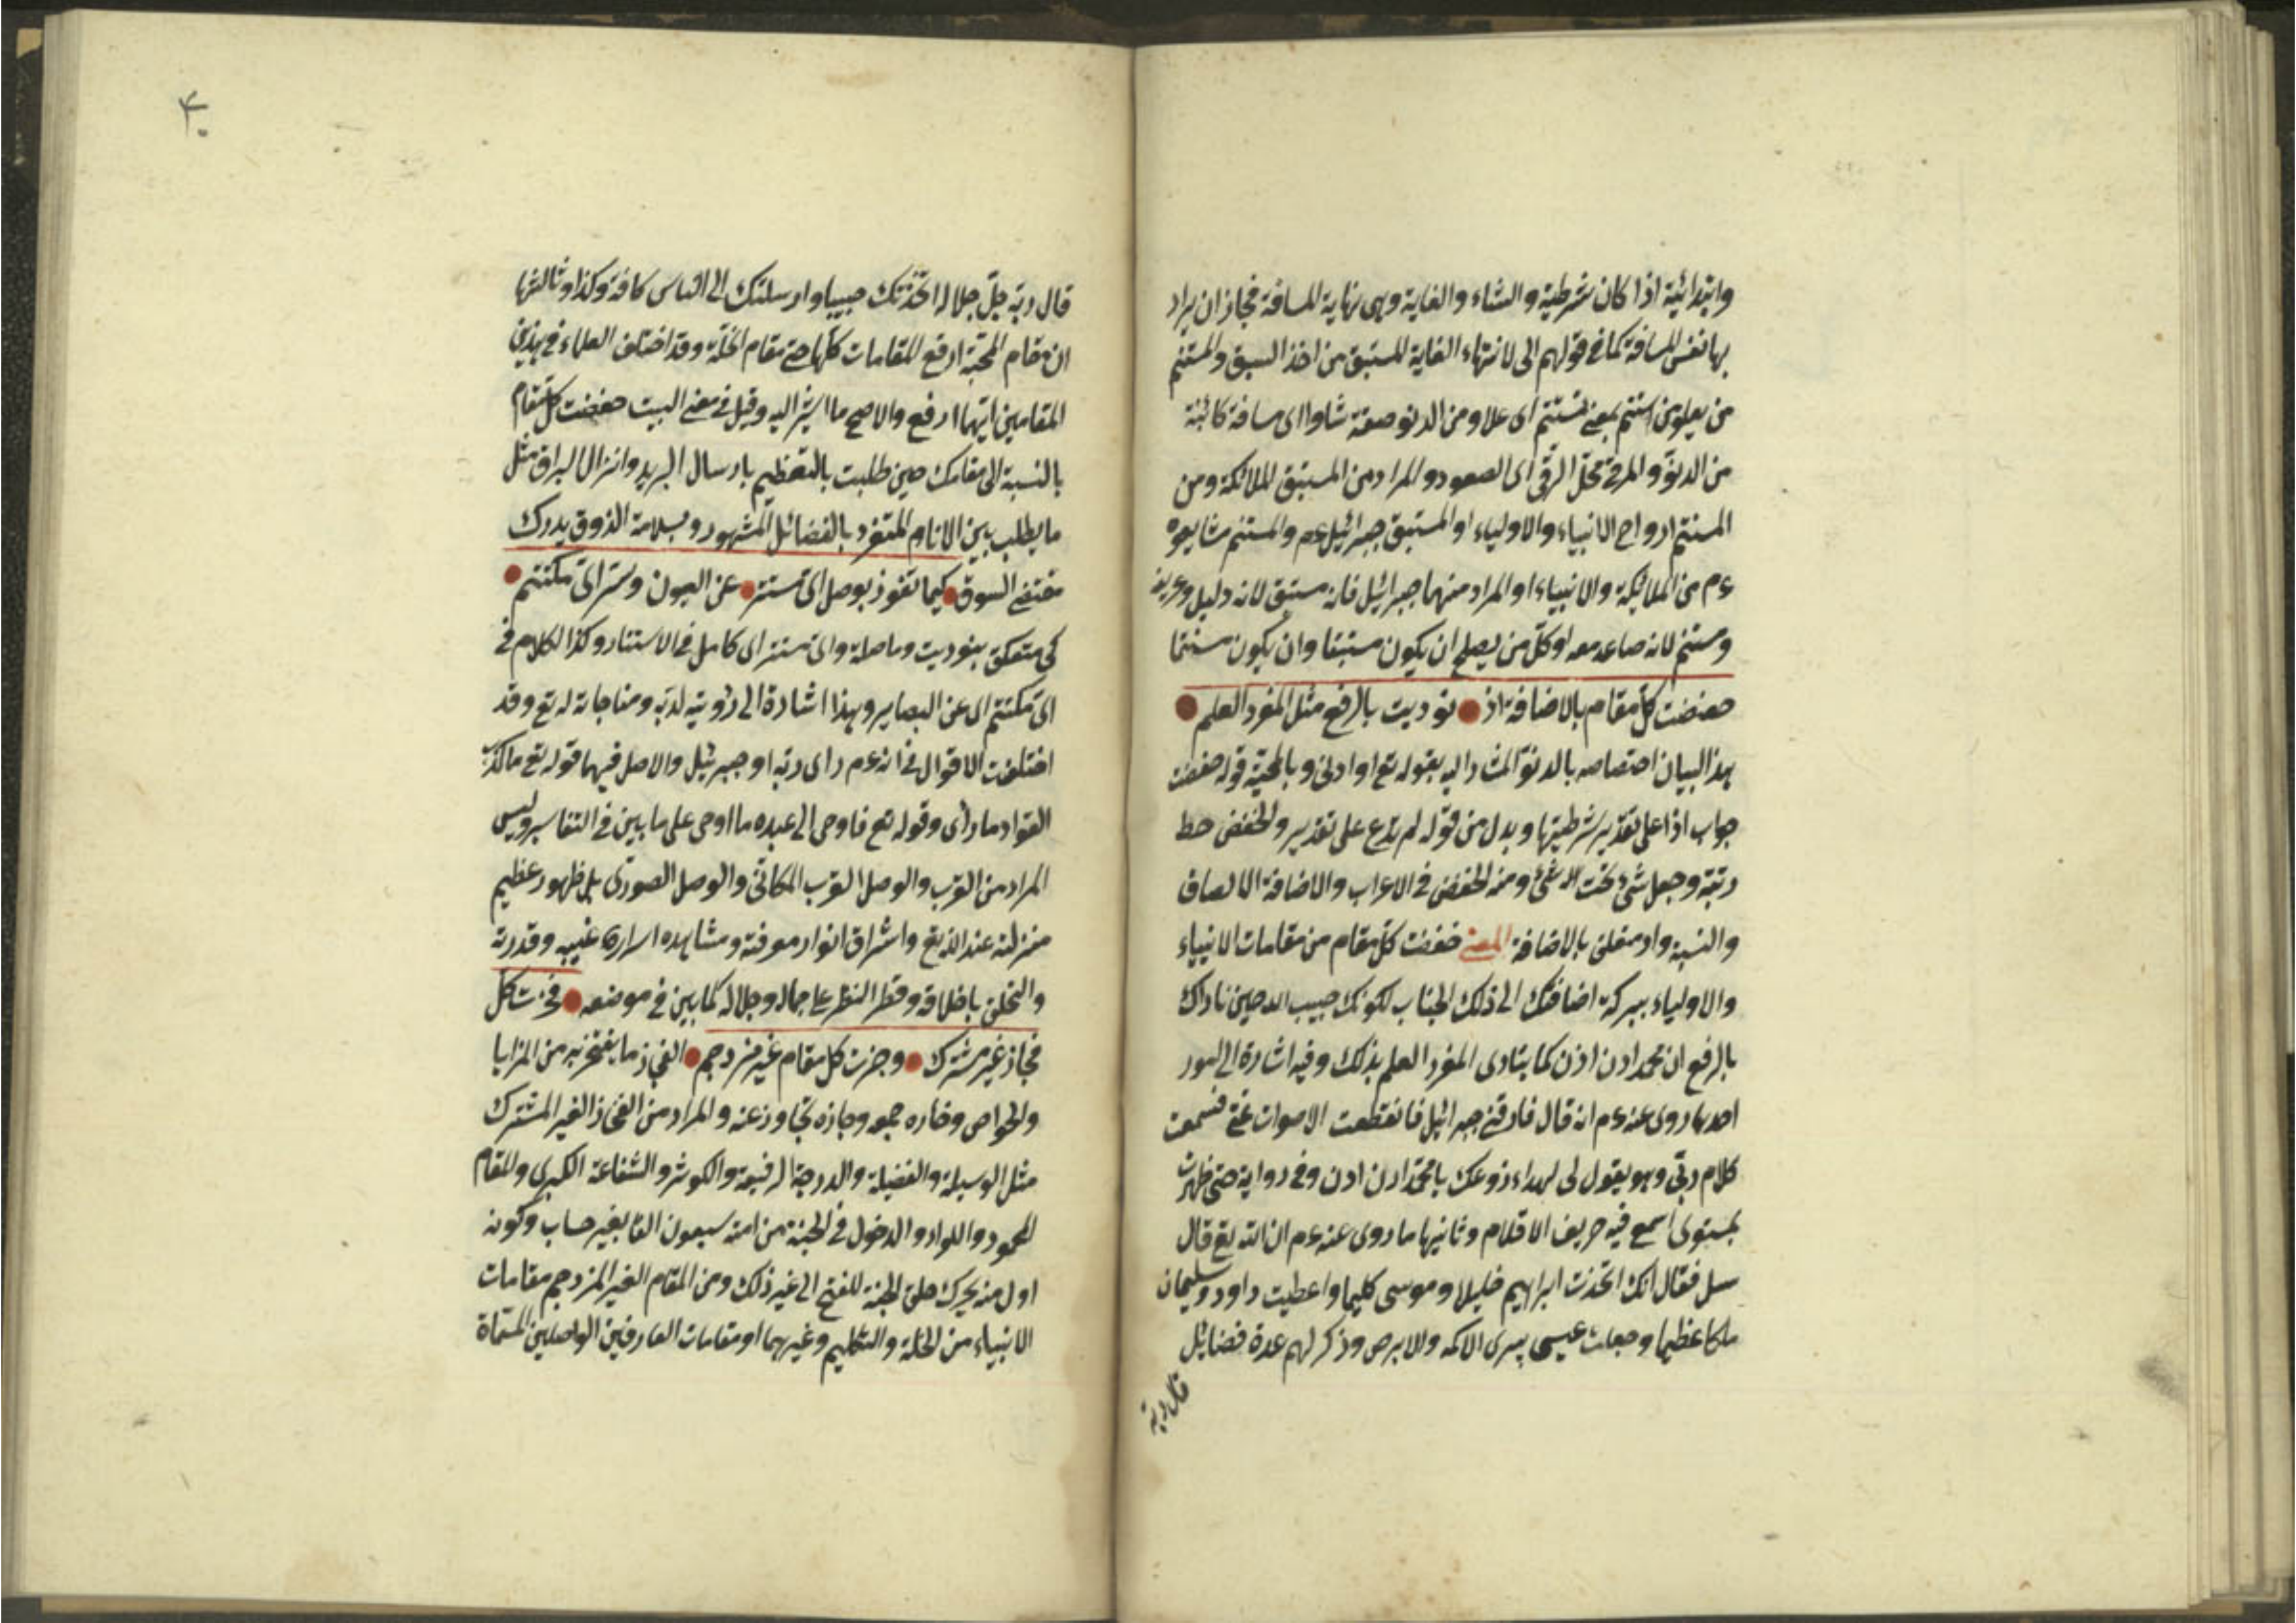 وابتدائية اذا كان شرطية والشاء والغاية وهى نهاية المسافة فجاز ان يراد
بها نفس المسافة كما فى قولهم الى لانتهاء الغاية المستبق من اخذ السبق والمستنم
من يعلو من استنم بمعنى تسنم اى علا ومن الدنو صفة شاوا اى مسافة كائنة
من الدنو والمرقى محل الرقى اى الصعود والمراد من المستبق الملائكة ومن
المستنم ارواح الانبياء والاولياء او المستبق جبرائيل عم والمستنم مشايعوه
عم من الملائكة والانبياء او المراد منهما جبرائيل فانه مستبق لانه دليل
ومستنم لانه صاعد معه او كل من يصلح ان يكون مستبقا وان يكون مستنما
خفضت كل مقام بالاضافة اذ نوديت بالرفع مثل المفرد العلم
بهذا البيان اختصاصه بالدنو المشار اليه بقوله تع او ادنى وبالمحبة قوله خفضت
جواب اذا على تقدير شرطيتها وبدل من قوله لم تدع على تقدير والخفض حط
رتبة وجعل شئ تحت الاشئ ومنه الخفض فى الاعراب والاضافة الالصاق
والنسبة واد متعلق بالاضافة المعنى خفضت كل مقام من مقامات الانبياء
والاولياء ببركة اضافتك الى ذلك الجناب لكونك حبيب الله حين ناداك
بالرفع ان محمد ادن ادن كما ينادى المفرد العلم بذلك وفيه اشارة الى امور
احدها روى عنه عم انه قال فارقنى جبرائيل فانقطعت الاصوات عنى فسمعت
كلام ربى وهو يقول لى ليهداء زوعك يا محمد ادن ادن وفى رواية حتى ظهرت
بمستوى اسمع فيه صريف الاقلام وثانيها ما روى عنه عم ان الله تع قال
سل فقال انك اتخذت ابراهيم خليلا وموسى كليما واعطيت داود وسليمان
ملكا عظيما وجعلت عيسى يبرئ الاكمه والابرص وذكر لهم عدة فضائل
قال ربه
٤٠
قال ربه جل جلاله اتخذتك حبيبا وارسلتك الى الناس كافة وكذا وثالثها
ان مقام المحبة ارفع المقامات كلها حتى مقام الخلة وقد اختلف العلماء فى هذين
المقامين ايهما ارفع والاصح ما اشير اليه وقيل فى معنى البيت خفضت كل مقام
بالنسبة الى مقامك حين طلبت بالتعظيم بارسال البريد وانزال البراق مثل
ما يطلب بين الانام المتفرد بالفضائل المشهور وبسلامة الذوق يدرك
مقتضى السوق كيما تفوز بوصل اى مستتر عن العيون وسر اى مكتتم
كى متعلق بنوديت وما صلة واى مستتر اى كامل فى الاستتار وكذا الكلام فى
اى مكتتم اى عن البصاير وهذا اشارة الى رؤيته لربه ومناجاته له تع وقد
اختلفت الاقوال فى انه عم راى ربه او جبرئيل والاصل فيهما قوله تع ما كذب
الفؤاد ما رأى وقوله تع فاوحى الى عبده ما اوحى على ما بين فى التفاسير وليس
المراد من القرب والوصل القرب المكانى والوصل الصورى بل ظهور عظيم
منزلته عند الله تع واشراق انوار معرفته ومشاهده اسراره غيبه وقدرته
والتخلق باخلاقه وقطر النظر على جماله وجلاله كما بين فى موضعه فحزت كل
فخار غير مشترك وجزت كل مقام غير مزدحم الفخار ما يفتخر به من المزايا
والخواص وحازه جمع وجازه تجاوز عنه والمراد من الفخار الغير المشترك
مثل الوسيلة والفضيلة والدرجة الرفيعة والكوثر والشفاعة الكبرى والمقام
المحمود واللواء والدخول فى الجنة من امته سبعون الفا بغير حساب وكونه
اول من يحرك حلق الجنة للفتح الى غير ذلك ومن المقام الغير المزدحم مقامات
الانبياء من الخلة والتكليم وغيرهما او مقامات العارفين الواصلين المسماة